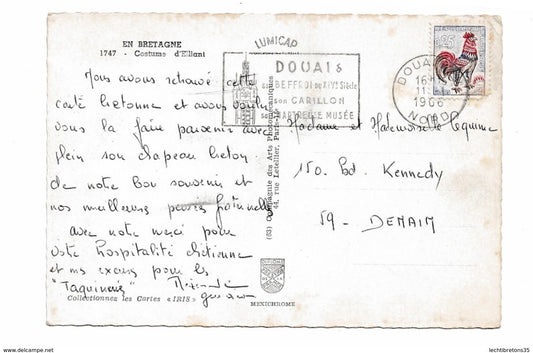 EN BRETAGNE
1747 - Costume d'Elliant
Nous avons retrouvé cette
carte bretonne et avons voulu
vous la faire parvenir avec
plein son chapeau breton
de notre bon souvenir et
nos meilleures pensées
avec notre merci pour
votre hospitalité chrétienne
et nos excuses pour les
"Taquineries"
Collectionnez les Cartes «IRIS»
LUMICAP
DOUAI &
son BEFFROI du XIVe Siècle
son CARILLON
sa CHARTREUSE MUSÉE
DOUAI
16H
1966
NORD
0,25
(63) Compagnie des Arts Photomécaniques
44, rue Letellier, Paris-15
MEXICHROME
Madame et Mademoiselle Lequime
150. Bd. Kennedy
59 - DENAIN
delcampe.net
lechtibretons35